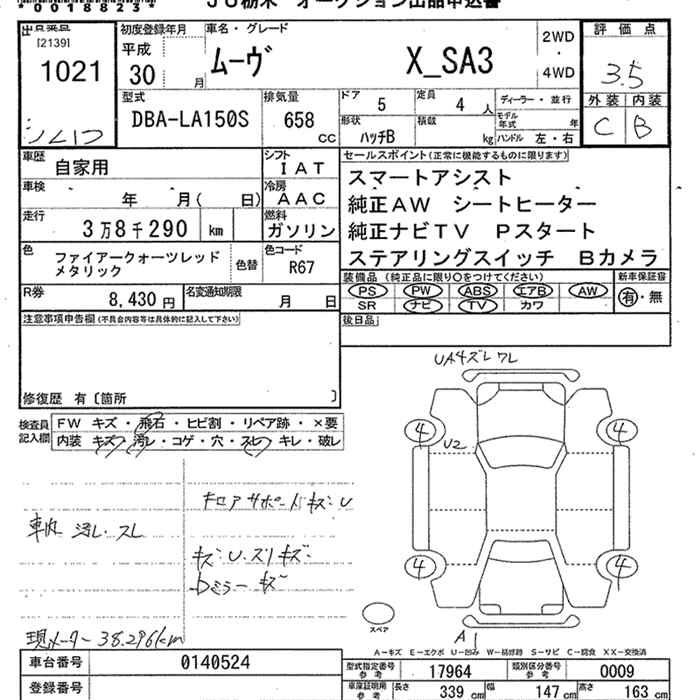 *0018823* JU栃木 オークション出品申込書
[2139]
1021
初度登録年月
平成
30 月
車名・グレード
ムーヴ X_SA3
2WD
・
4WD
評価点
3.5
外装 内装
C B
型式
DBA-LA150S
排気量
658
cc
ドア 5
定員 4 人
形状 ハッチB
積載 kg
ディーラー・並行
モデル年式 年
ハンドル 左・右
車歴 自家用
シフト IAT
車検 年 月( 日)
冷房 AAC
走行 3万8千290 km
燃料 ガソリン
色 ファイアークォーツレッド
メタリック
色替
色コード R67
R券 8,430円
名変通知期限 月 日
セールスポイント(正常に機能するものに限ります)
スマートアシスト
純正AW シートヒーター
純正ナビTV Pスタート
ステアリングスイッチ Bカメラ
装備品(純正品に限り○をつけてください) 新車保証書
PS PW ABS エアB AW 有・無
SR ナビ TV カワ
後日品
注意事項申告欄(不具合内容等は具体的に記入して下さい)
修復歴 有〔箇所 〕
検査員記入欄
FW キズ・飛石・ヒビ割・リペア跡・×要
内装 キズ・汚レ・コゲ・穴・スレ・キレ・破レ
車内 汚レ・スレ
キズ・U・スリキズ・
現メーター 38.296km
UA4ズレワレ
4 4
U2
4 4
A1
スペア
A－キズ E－エクボ U－凹み W－補修跡 S－サビ C－腐食 XX－交換済
車台番号 0140524
登録番号
型式指定番号 参考 17964
類別区分番号 参考 0009
車庫証明用 参考 長さ 339 cm 幅 147 cm 高さ 163 cm